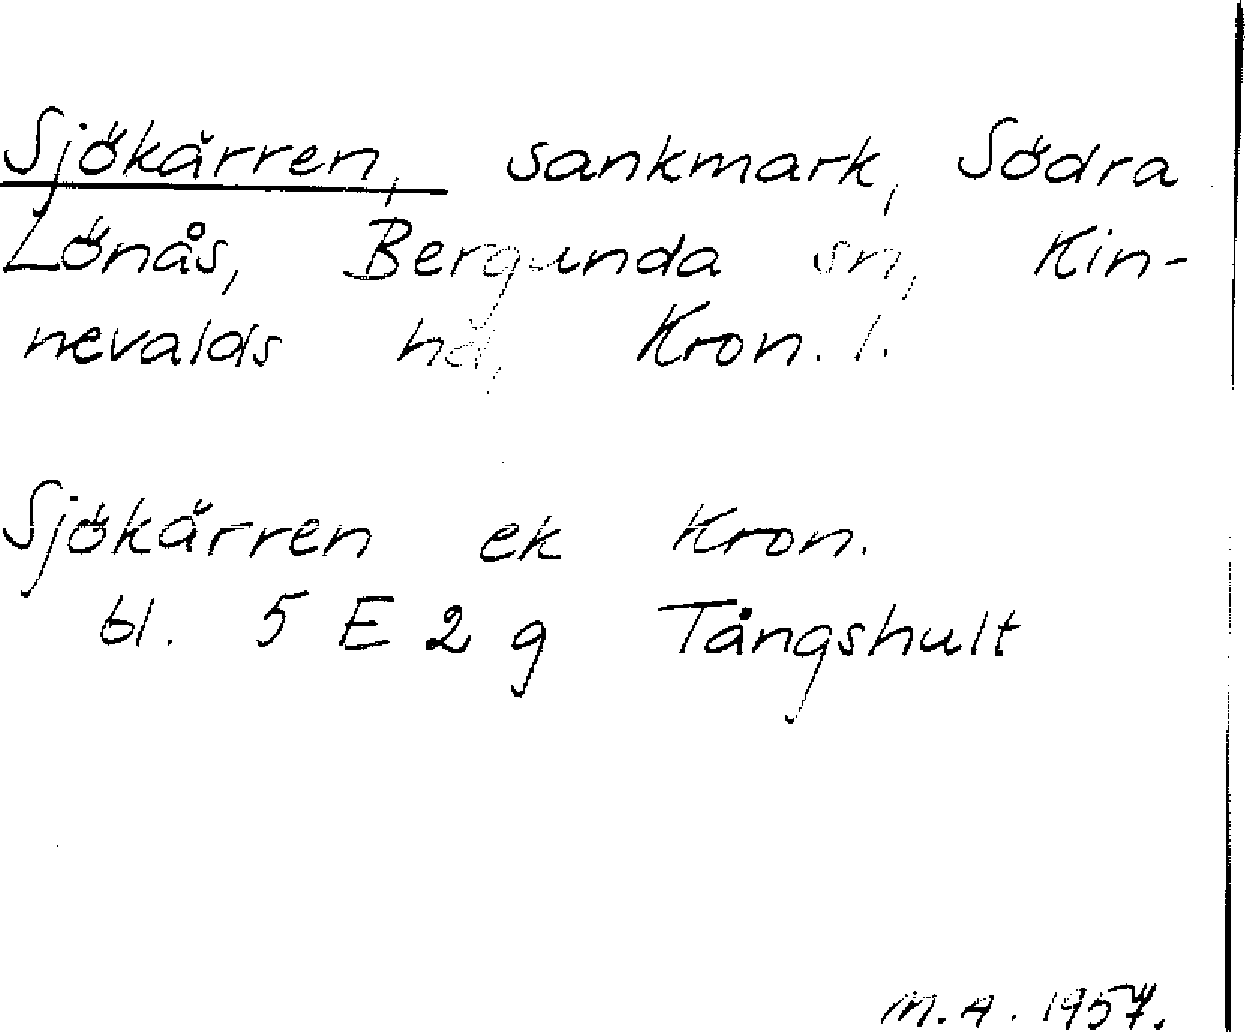 Sjökärren, sankmark, Södra
Lönås, Bergunda sn, Kin-
nevalds hd, Kron. l.
Sjökärren ek Kron.
bl. 5 E 2 g Tångshult
M. A. 1957.